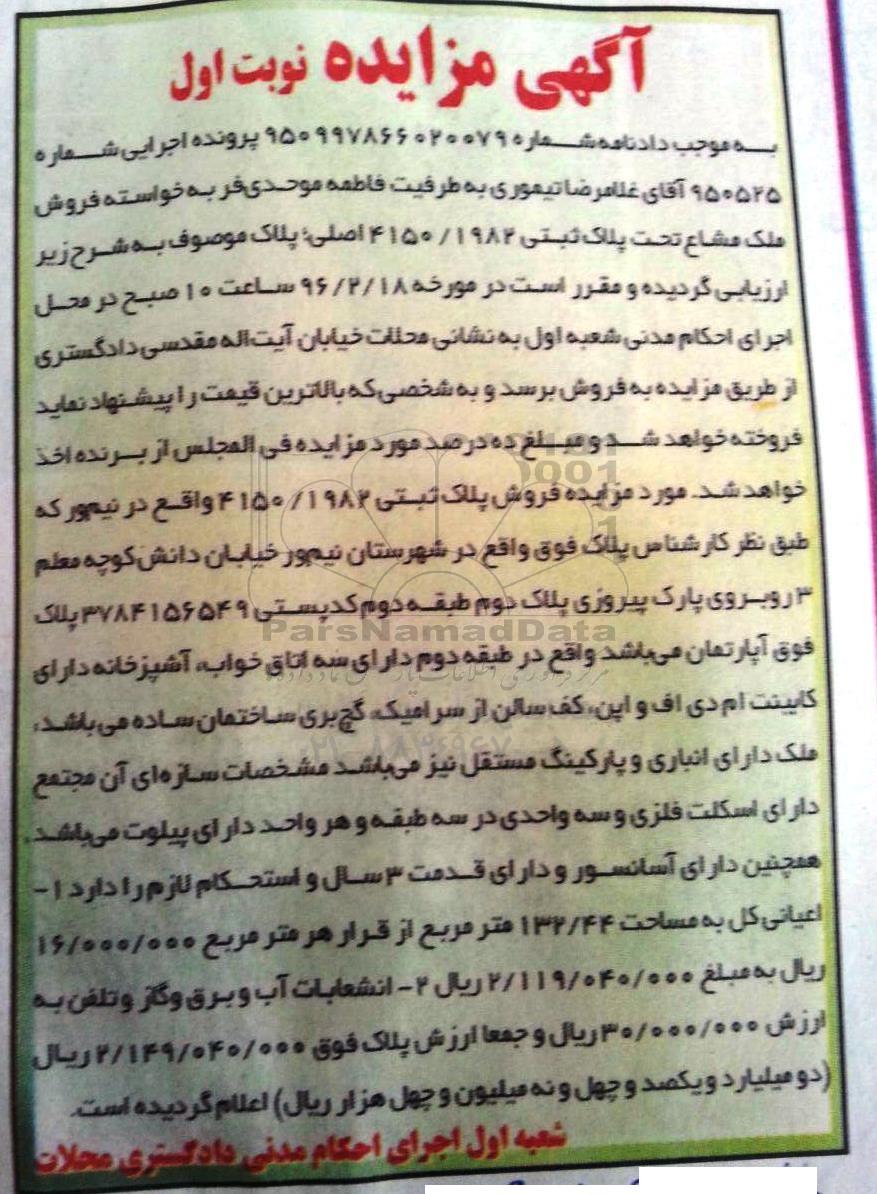 آگهی مزایده نوبت اول
به موجب دادنامه شماره ۹۵۰۹۹۷۸۶۶۰۲۰۰۷۹ پرونده اجرایی شماره
۹۵۰۵۲۵ آقای غلامرضا تیموری به طرفیت فاطمه موحدی‌فر به خواسته فروش
ملک مشاع تحت پلاک ثبتی ۱۹۸۲/ ۴۱۵۰ اصلی؛ پلاک موصوف به شرح زیر
ارزیابی گردیده و مقرر است در مورخه ۹۶/۲/۱۸ ساعت ۱۰ صبح در محل
اجرای احکام مدنی شعبه اول به نشانی محلات خیابان آیت‌اله مقدسی دادگستری
از طریق مزایده به فروش برسد و به شخصی که بالاترین قیمت را پیشنهاد نماید
فروخته خواهد شد و مبلغ ده درصد مورد مزایده فی المجلس از برنده اخذ
خواهد شد. مورد مزایده فروش پلاک ثبتی ۱۹۸۲/ ۴۱۵۰ واقع در نیمور که
طبق نظر کارشناس پلاک فوق واقع در شهرستان نیمور خیابان دانش کوچه معلم
۳ روبروی پارک پیروزی پلاک دوم طبقه دوم کدپستی ۳۷۸۴۱۵۶۵۴۹ پلاک
ParsNamadData
فوق آپارتمان می‌باشد واقع در طبقه دوم دارای سه اتاق خواب، آشپزخانه دارای
کابینت ام دی اف و اپن، کف سالن از سرامیک، گچ‌بری ساختمان ساده می‌باشد،
ملک دارای انباری و پارکینگ مستقل نیز می‌باشد مشخصات سازه‌ای آن مجتمع
دارای اسکلت فلزی و سه واحدی در سه طبقه و هر واحد دارای پیلوت می‌باشد.
همچنین دارای آسانسور و دارای قدمت ۳ سال و استحکام لازم را دارد ۱-
اعیانی کل به مساحت ۱۳۲/۴۴ متر مربع از قرار هر متر مربع ۱۶/۰۰۰/۰۰۰
ریال به مبلغ ۲/۱۱۹/۰۴۰/۰۰۰ ریال ۲- انشعابات آب و برق و گاز و تلفن به
ارزش ۳۰/۰۰۰/۰۰۰ ریال و جمعا ارزش پلاک فوق ۲/۱۴۹/۰۴۰/۰۰۰ ریال
(دو میلیارد و یکصد و چهل و نه میلیون و چهل هزار ریال) اعلام گردیده است.
شعبه اول اجرای احکام مدنی دادگستری محلات